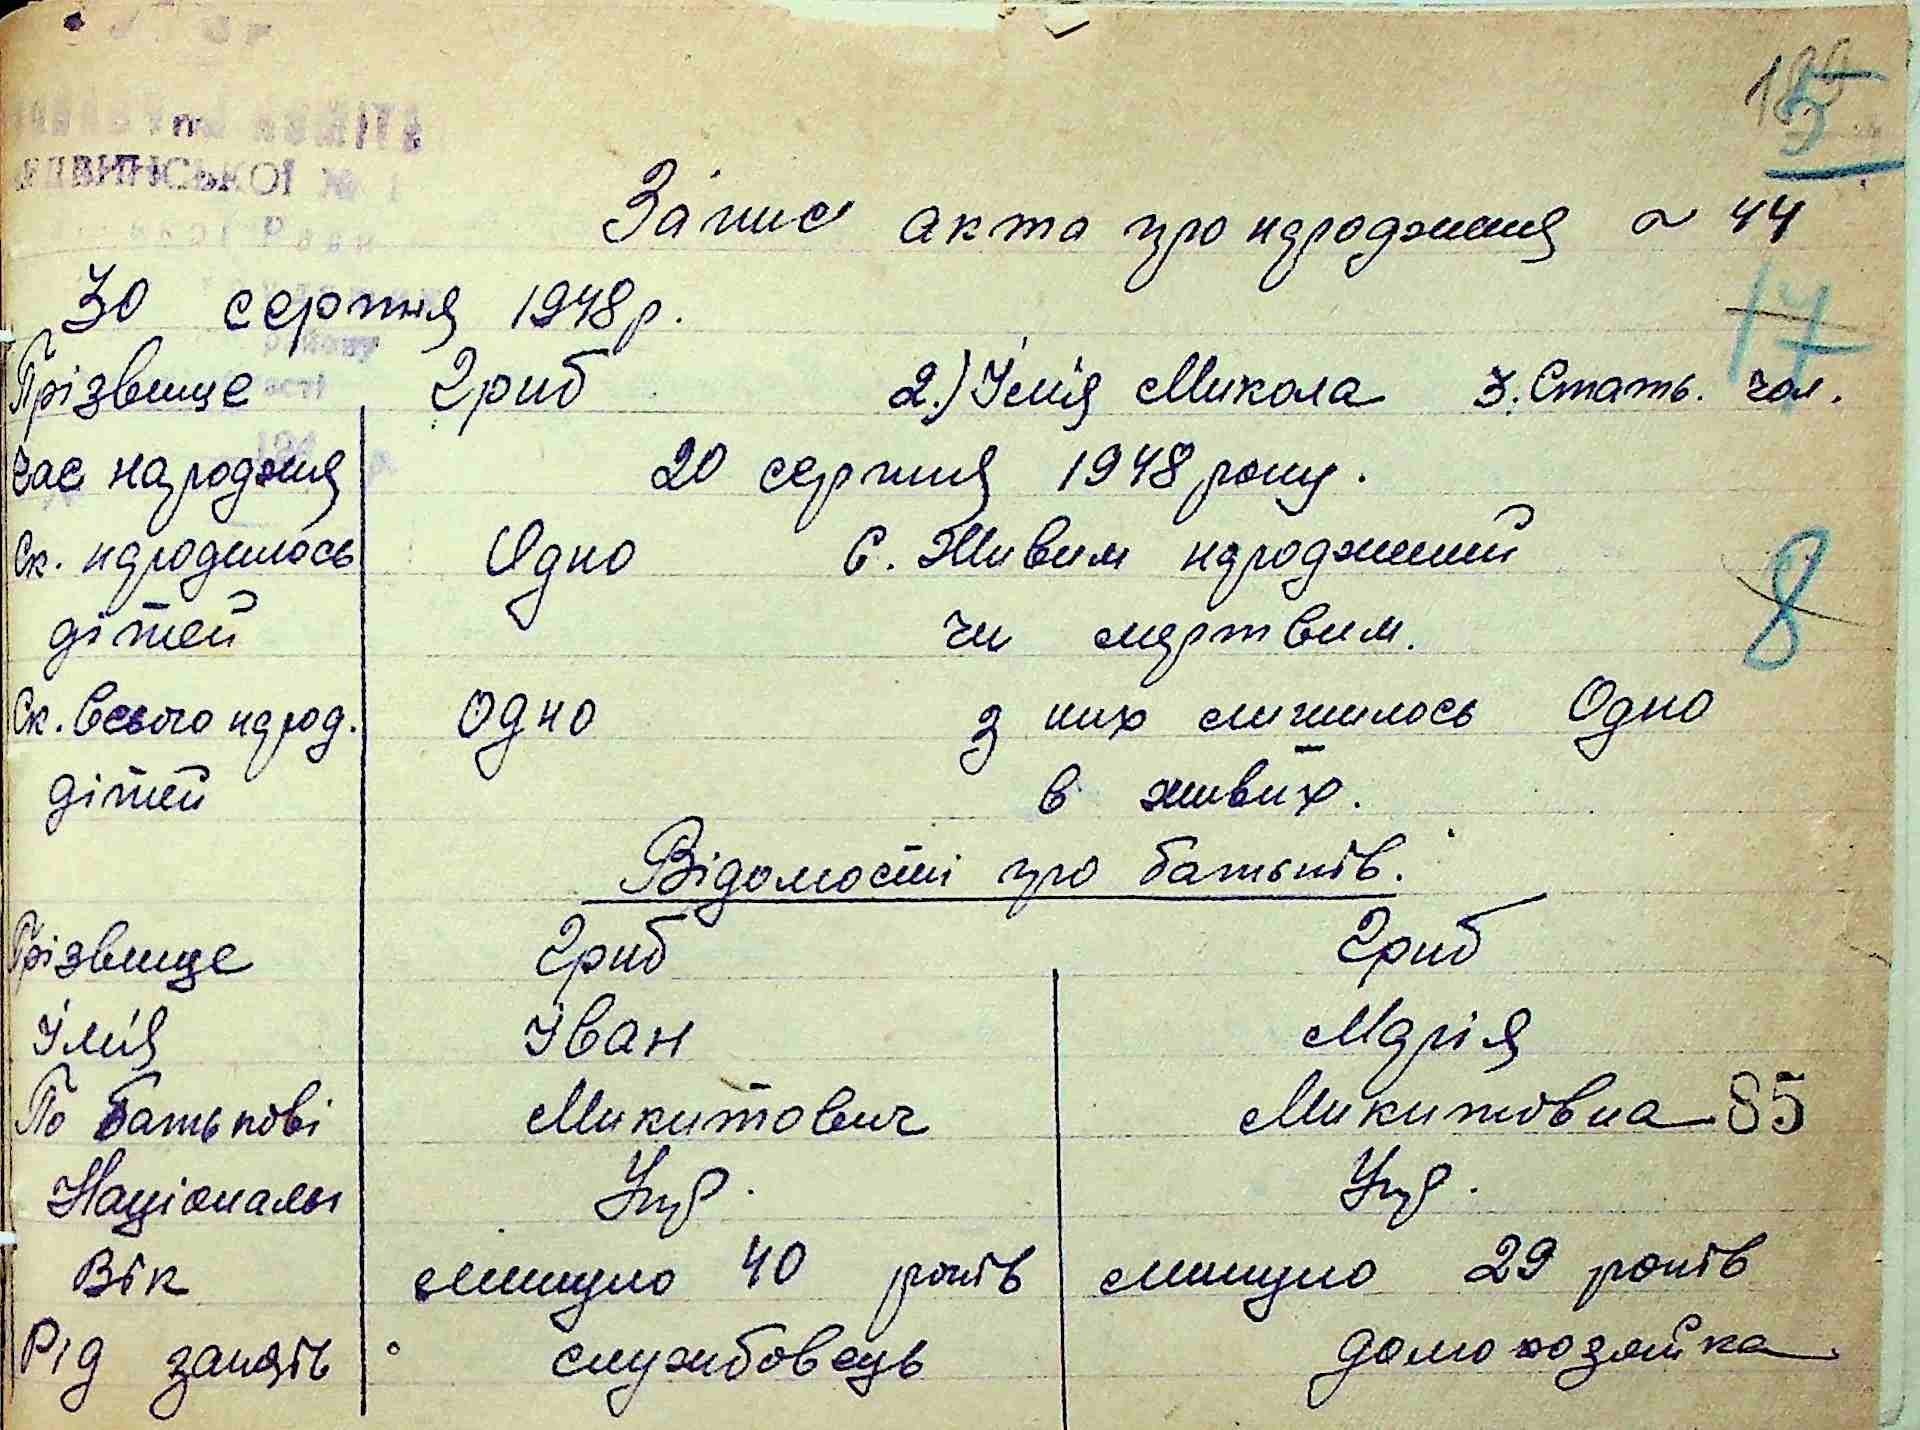 Запис акта про народження № 44
30 серпня 1948 р.
Прізвище Гриб 2.) Ім'я Микола 3. Стать. чол.
17
час народжня 20 серпня 1948 року.
Ск. народилось Одно 6. Живим народжений
8
дітей чи мертвим.
Ск. всього народ. Одно з них лишилось Одно
дітей в живих.
Відомості про батьків.
Прізвище Гриб Гриб
Ім'я Іван Марія
По батькові Микитович Микитовна 85
Національн Укр. Укр.
Вік минуло 40 років минуло 29 років
Рід занять службовець домохозяйка